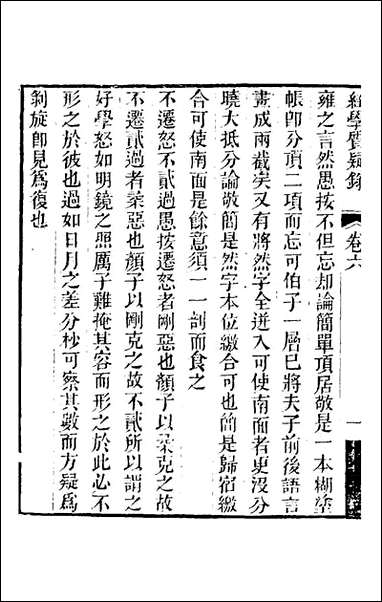 經學質疑錄
卷六
一
雍之言然愚按不但忘却論簡單頂居敬是一本糊塗
帳卽分頂二項而忘可伯子一層已將夫子前後語言
畫成兩截矣又有將然字全迸入可使南面者更沒分
曉大抵分論敬簡是然字本位繳合可也簡是歸宿繳
合可使南面是餘意須一一剖而食之
不遷怒不貳過愚按遷怒者剛惡也顏子以柔克之故
不遷貳過者柔惡也顏子以剛克之故不貳所以謂之
好學怒如明鏡之照厲子難掩其容而形之於此必不
形之於彼也過如日月之差分秒可察其數而方疑爲
剝旋卽見爲復也